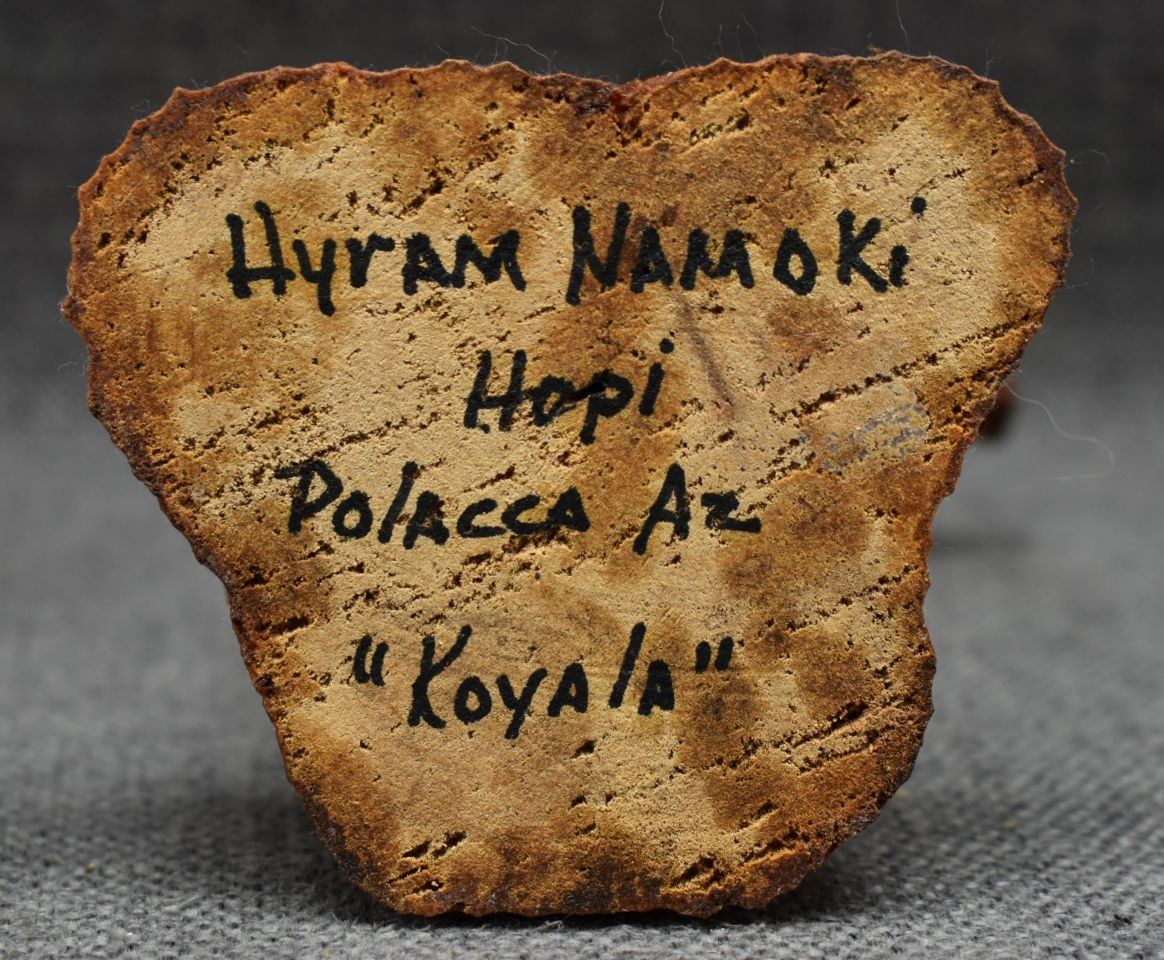 Hyram Namoki
Hopi
Polacca Az
"Koyala"